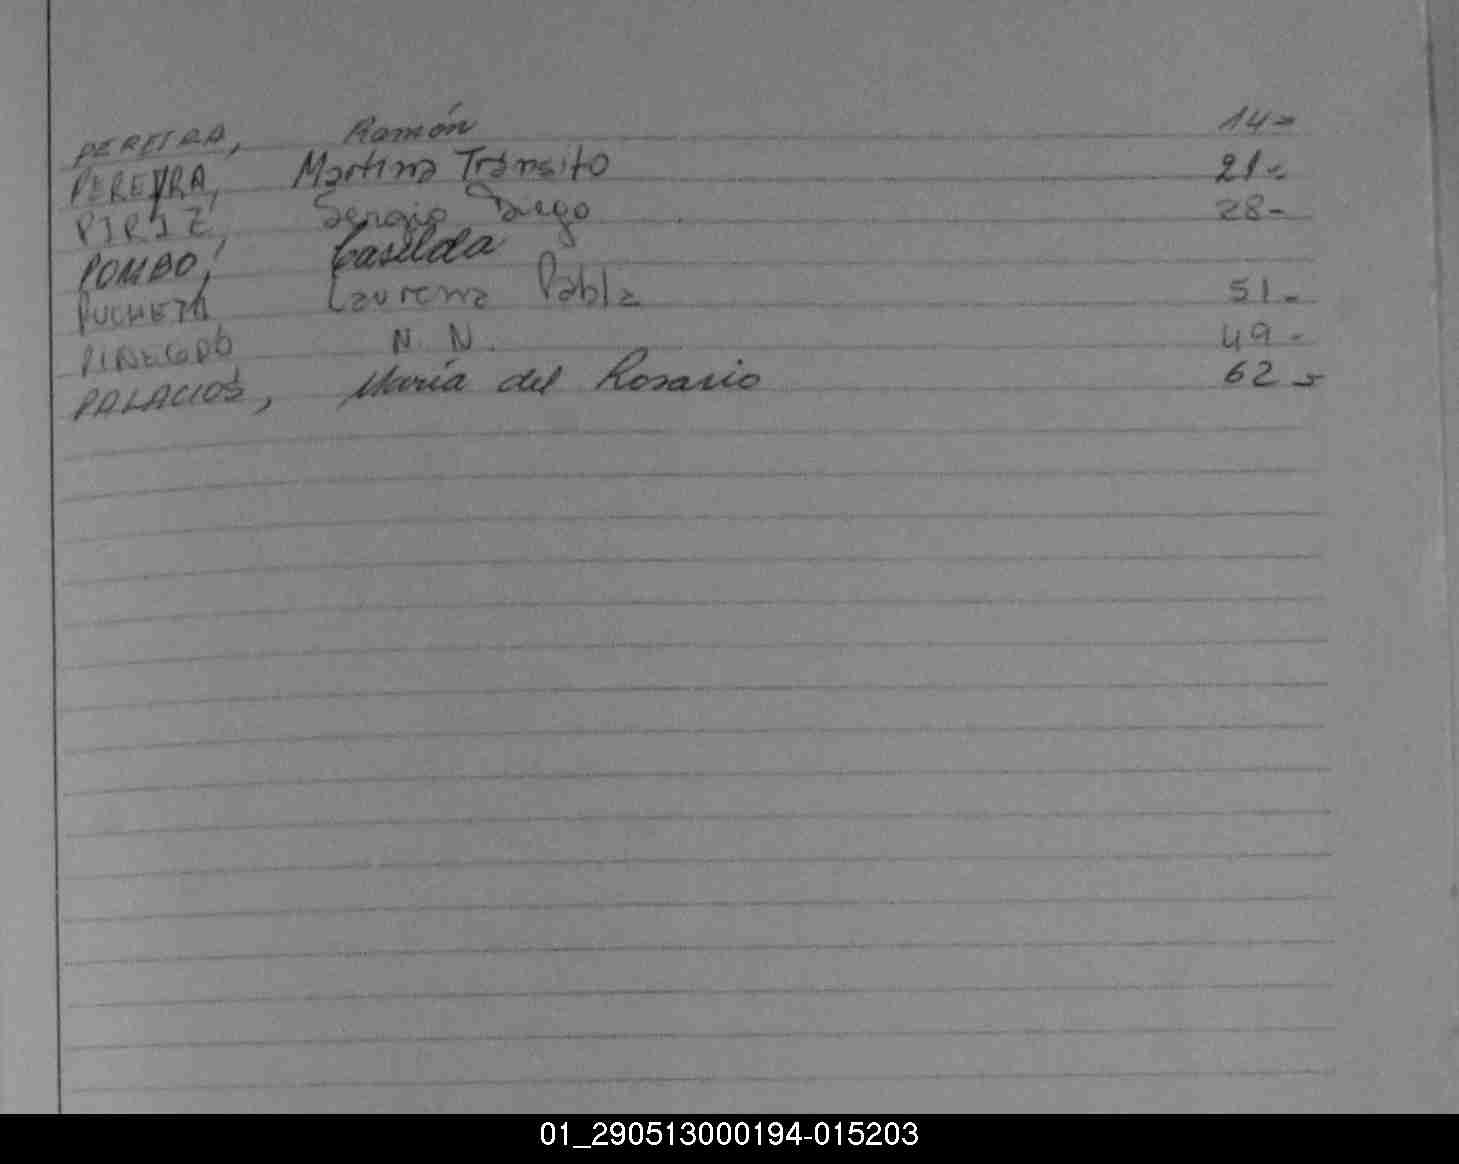 PEREIRA, Ramón 14-
PEREYRA, Martina Tránsito 21-
PIRIZ, Sergio Diego 28-
POMBO, Casilda
PUCHETA Laurena Pabla 51-
N. N. 49-
PALACIOS, María del Rosario 62-
01_290513000194-015203